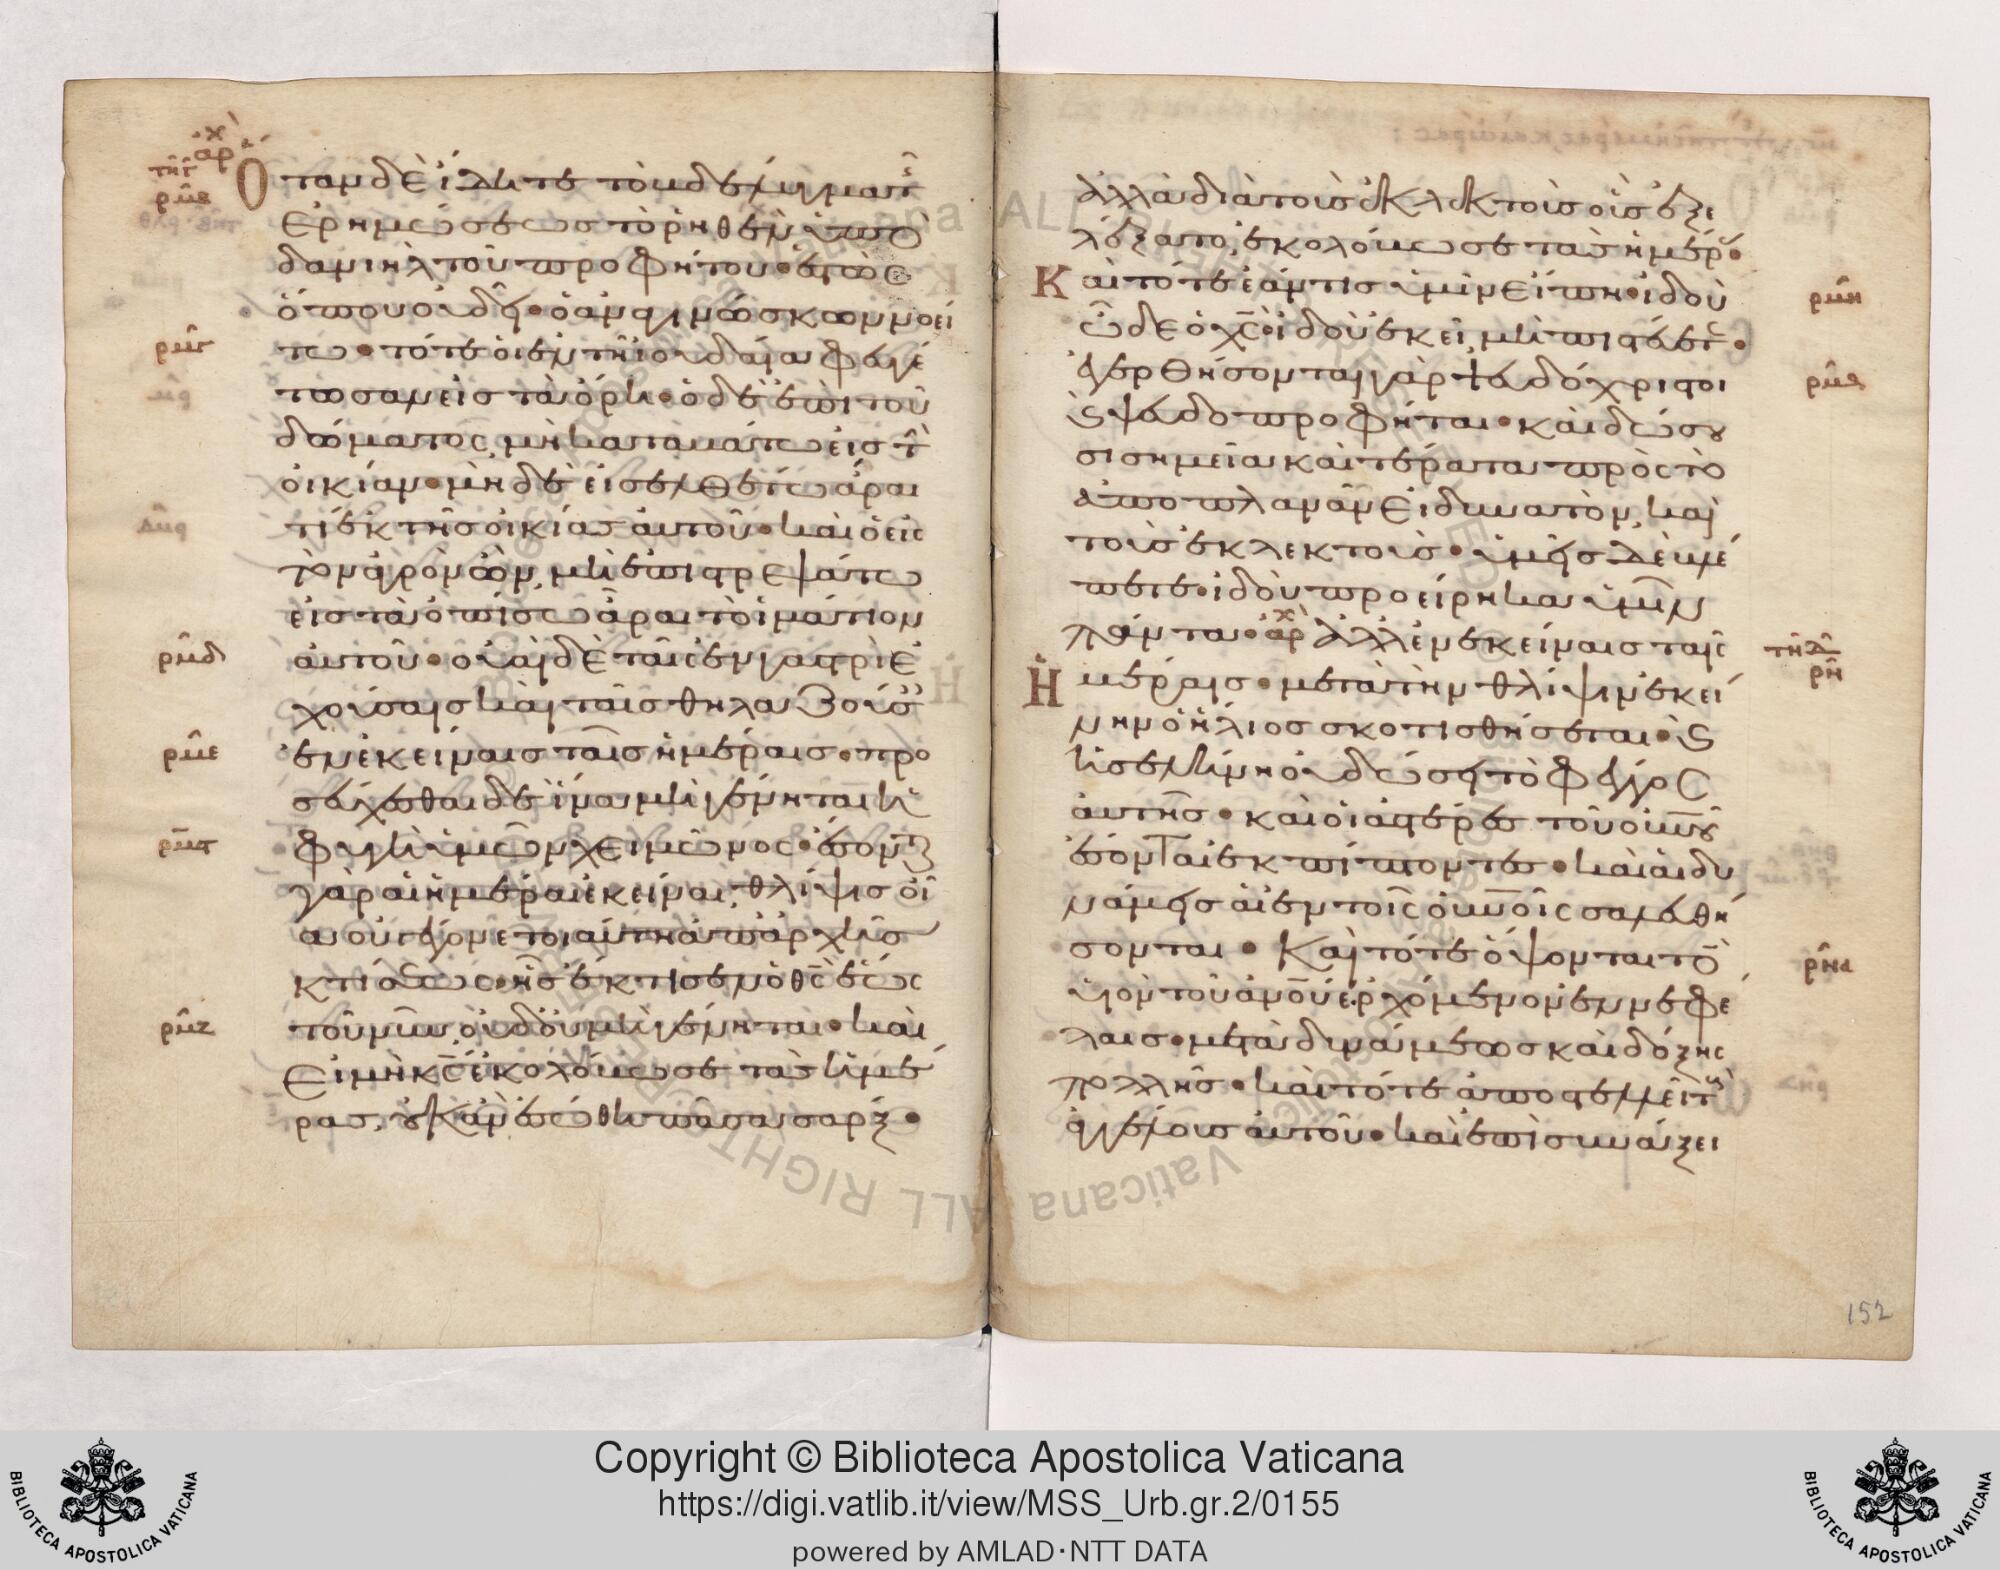 ἀρχ
τῇ γ
ρμβ
Ὅταν δὲ ἴδητε τὸ βδέλυγμα τῆς
ἐρημώσεως τὸ ῥηθὲν ὑπὸ
δανιὴλ τοῦ προφήτου· ἑστὼς
ὅπου οὐ δεῖ· ὁ ἀναγινώσκων νοεί
τω· τότε οἱ ἐν τῇ ἰουδαία φευγέ
ρμγ
τωσαν εἰς τὰ ὄρη· ὁ δὲ ἐπὶ τοῦ
δώματος, μὴ καταβάτω εἰς τὴν
οἰκίαν· μὴ δὲ εἰσελθέτω ἆραι
τὶ ἐκ τῆς οἰκίας αὐτοῦ· καὶ ὁ εἰς
τὸν ἀγρὸν ὢν, μὴ ἐπιστρεψάτω
εἰς τὰ ὀπίσω ἆραι τὸ ἱμάτιον
ρμδ
αὐτοῦ· οὐαὶ δὲ ταῖς ἐν γαστρὶ ἐ
χούσαις καὶ ταῖς θηλαζούσαις
ρμε
ἐν ἐκείναις ταῖς ἡμέραις· προ
σεύχεσθαι δὲ ἵνα μὴ γένηται ἡ
ρμς
φυγὴ ὑμῶν χειμῶνος· ἔσονται
γὰρ αἱ ἡμέραι ἐκεῖναι, θλίψις οἵ
α οὐ γέγονε τοιαύτη ἀπ ἀρχῆς
κτίσεως· ἧς ἔκτισεν ὁ θς ἕως
ρμζ
τοῦ νῦν, οὐδ οὐ μὴ γένηται· καὶ
εἰ μὴ κς ἐκολόβωσε τὰς ἡμέ
ρας, οὐκ ἂν ἐσώθη πᾶσα σάρξ·
ἀλλὰ διὰ τοὺς ἐκλεκτοὺς οὓς ἐξε
λέξατο, ἐκολόβωσε τὰς ἡμέρας·
Καὶ τότε ἐάν τις ὑμῖν εἴπη· ἰδοὺ
ρμη
ὧδε ὁ χς· ἰδοὺ ἐκεῖ, μὴ πιστεύετε·
ἐγερθήσονται γὰρ ψευδόχριστοι
ρμθ
καὶ ψευδοπροφῆται· καὶ δώσου
σι σημεῖα καὶ τέρατα πρὸς τὸ
ἀποπλανᾶν εἰ δυνατὸν, καὶ
τοὺς ἐκλεκτούς· ὑμεῖς δὲ βλέ
πετε· ἰδοὺ προείρηκα ὑμῖν
πάντα· ἀρχ ἀλλ ἐν ἐκείναις ταῖς
τῇ δ
ρν
Ἡμέραις· μετὰ τὴν θλίψιν ἐκεί
νην ὁ ἥλιος σκοτισθήσεται· καὶ
ἡ σελήνη οὐ δώσει τὸ φέγγος
αὐτῆς· καὶ οἱ ἀστέρες τοῦ οὐνοῦ
ἔσονται ἐκπίπτοντες· καὶ αἱ δυ
νάμεις αἱ ἐν τοῖς οὐνοῖς σαλευθή
σονται· Καὶ τότε ὄψονται τὸν
ρνα
υἱὸν τοῦ ἀνοῦ ἐρχόμενον ἐν νεφέ
λαις· μετὰ δυνάμεως καὶ δόξης
πολλῆς· καὶ τότε ἀποστελεῖ τοὺς
ἀγγέλους αὐτοῦ· καὶ ἐπισυνάξει
152
Copyright © Biblioteca Apostolica Vaticana
https://digi.vatlib.it/view/MSS_Urb.gr.2/0155
powered by AMLAD·NTT DATA
BIBLIOTECA APOSTOLICA VATICANA
BIBLIOTECA APOSTOLICA VATICANA